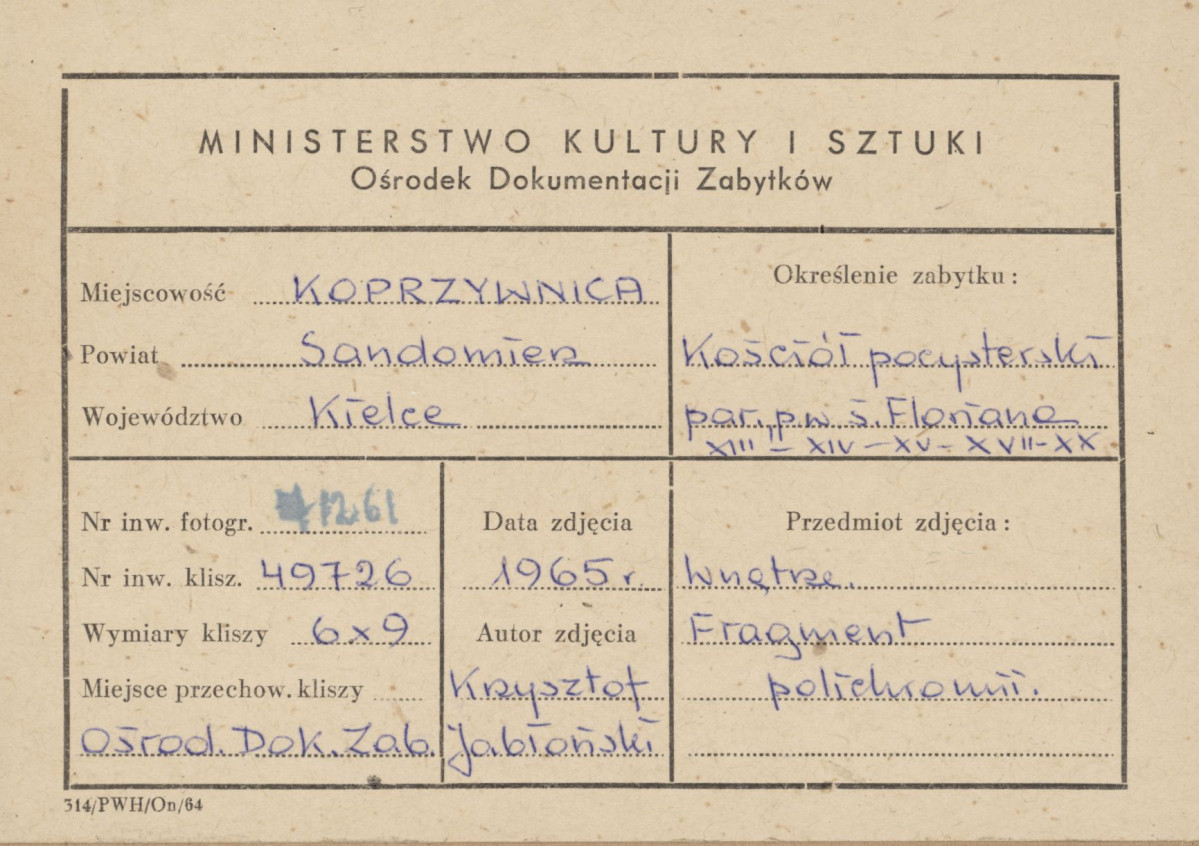 MINISTERSTWO KULTURY I SZTUKI
Ośrodek Dokumentacji Zabytków
Miejscowość KOPRZYWNICA
Powiat Sandomierz
Województwo Kielce
Określenie zabytku:
Kościół pocysterski
par. p.w. ś. Floriana
XIII – XIV – XV – XVII-XX
Nr inw. fotogr.
Nr inw. klisz. 49726
Wymiary kliszy 6x9
Miejsce przechow. kliszy
Ośrod. Dok. Zab.
Data zdjęcia
1965 r.
Autor zdjęcia
Krzysztof
Jabłoński
Przedmiot zdjęcia:
Wnętrze.
Fragment
polichromii.
314/PWH/On/64